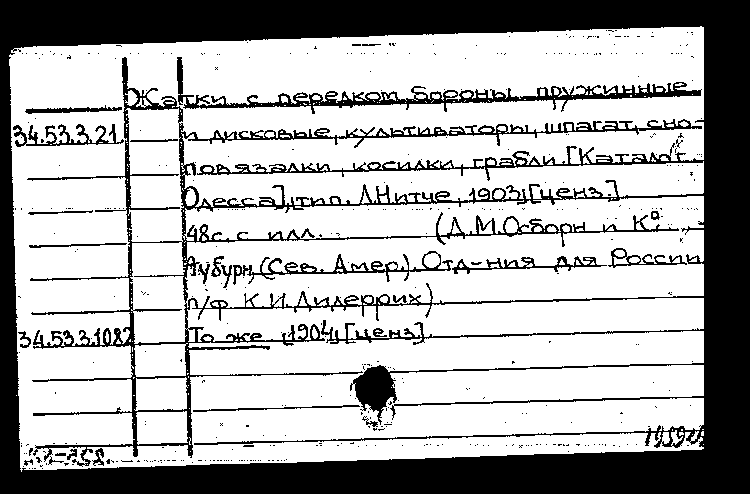 Жатки с передком, бороны пружинные
34.53.3.21. и дисковые, культиваторы, шпагат, сно-
повязалки, косилки, грабли. [Каталог.
Одесса], тип. Л.Нитче, 1903, [ценз.]
48с. с илл. (Д.М.Осборн и К°,
Аубурн, (Сев. Амер.). Отд-ния для России
п/ф К.И.Дидеррих).
34.53.3.1082. То же [1904, [ценз].